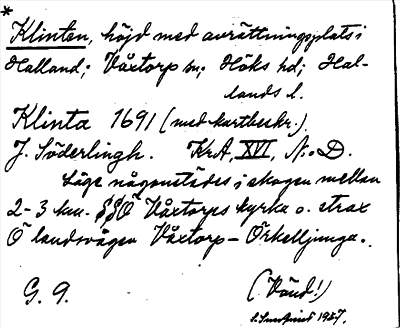 *
Klinten, höjd med avrättningsplats i
Halland; Våxtorp sn; Höks hd; Hal-
lands l.
Klinta 1691 (med kartbeskr.)
J. Söderlingh. KrA, XVI, N:o D.
Läge någonstädes i skogen mellan
2-3 km. SSO Våxtorps kyrka o. strax
O landsvägen Våxtorp - Örkelljunga.
G. 9. (Vänd!)
1927.